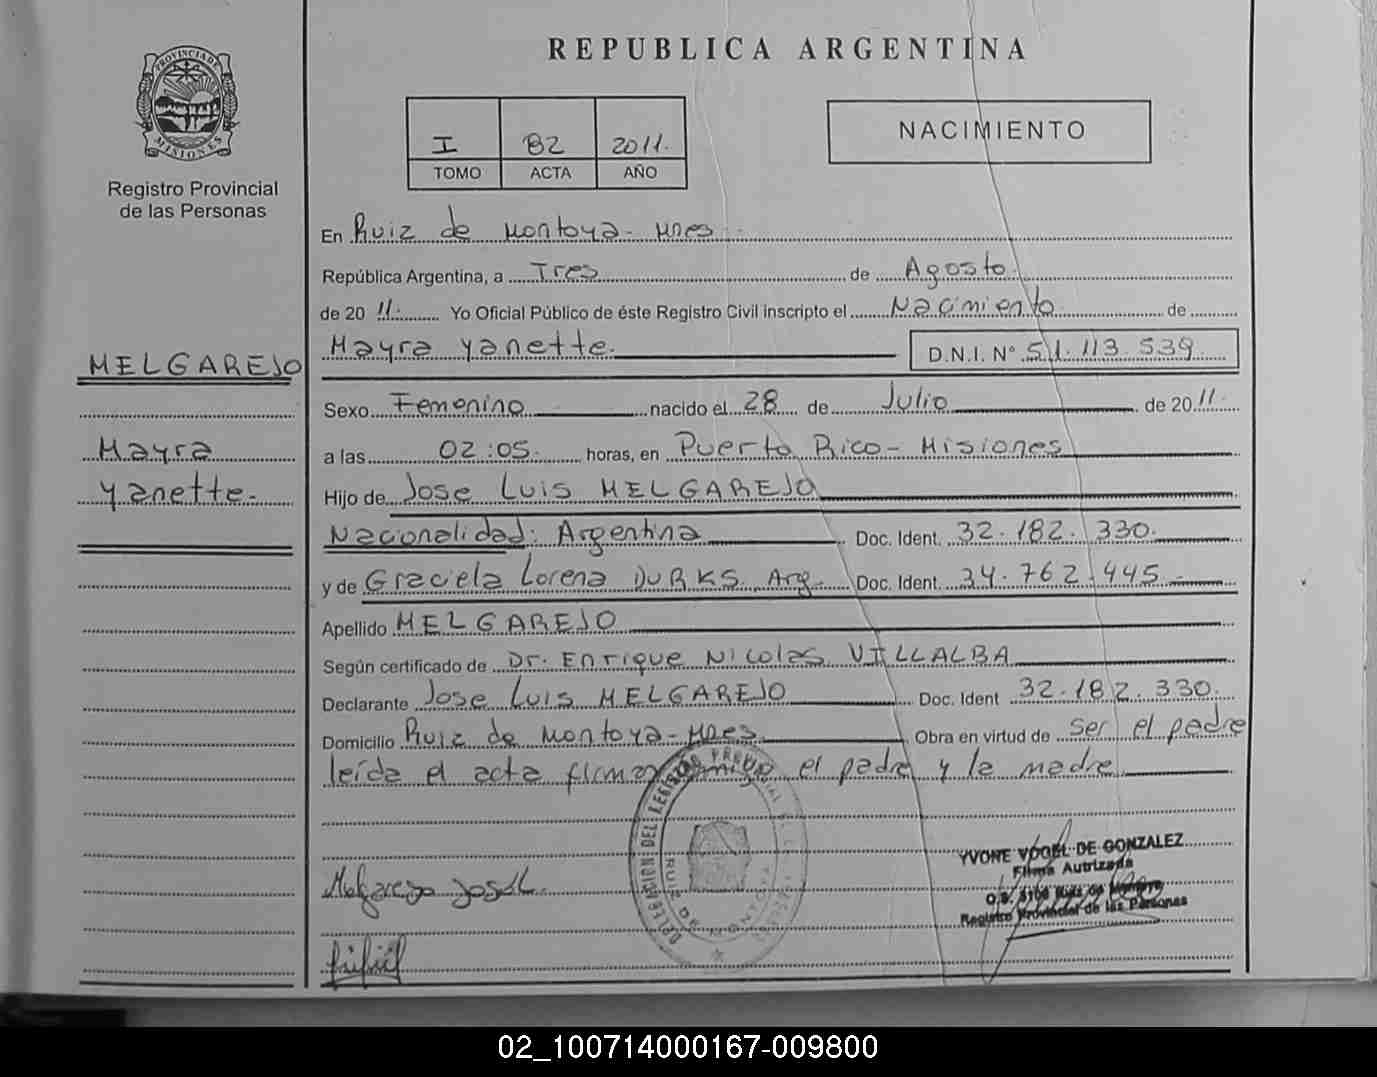 REPUBLICA ARGENTINA
PROVINCIA DE
MISIONES
Registro Provincial
de las Personas
I 82 2011.
TOMO ACTA AÑO
NACIMIENTO
En Ruiz de Montoya - Mnes
República Argentina, a Tres de Agosto
de 20 11. Yo Oficial Público de éste Registro Civil inscripto el Nacimiento de
Mayra Yanette. D.N.I. N° 51.113.539
MELGAREJO
Mayra
Yanette.
Sexo Femenino nacido el 28 de Julio de 2011.
a las 02:05. horas, en Puerto Rico - Misiones
Hijo de Jose Luis MELGAREJO
Nacionalidad: Argentina Doc. Ident. 32.182.330.
y de Graciela Lorena DURKS. Arg. Doc. Ident. 34.762.445
Apellido MELGAREJO
Según certificado de Dr. Enrique Nicolas VILLALBA
Declarante Jose Luis MELGAREJO Doc. Ident 32.182.330.
Domicilio Ruiz de Montoya - Mnes Obra en virtud de ser el padre
leída el acta firman conmigo el padre y la madre
DELEGACION DEL REGISTRO PROVINCIAL
RUIZ DE MONTOYA
Melgarejo José L.
YVONE VOGEL DE GONZALEZ
Firma Autrizada
Registro Provincial de las Personas
02_100714000167-009800